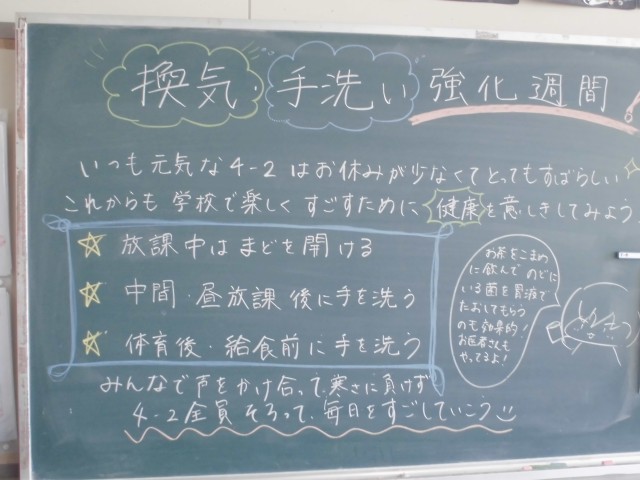 換気・手洗い強化週間!
いつも元気な4-2はお休みが少なくてとってもすばらしい
これからも学校で楽しくすごすために、健康を意しきしてみよう
☆ 放課中はまどを開ける
☆ 中間・昼放課後に手を洗う
☆ 体育後・給食前に手を洗う
お茶をこまめ
に飲んで のどに
いる菌を胃液で
たおしてもらう
のも効果的!
お医者さんも
やってるよ!
みんなで声をかけ合って、寒さに負けず
4-2全員そろって、毎日をすごしていこう